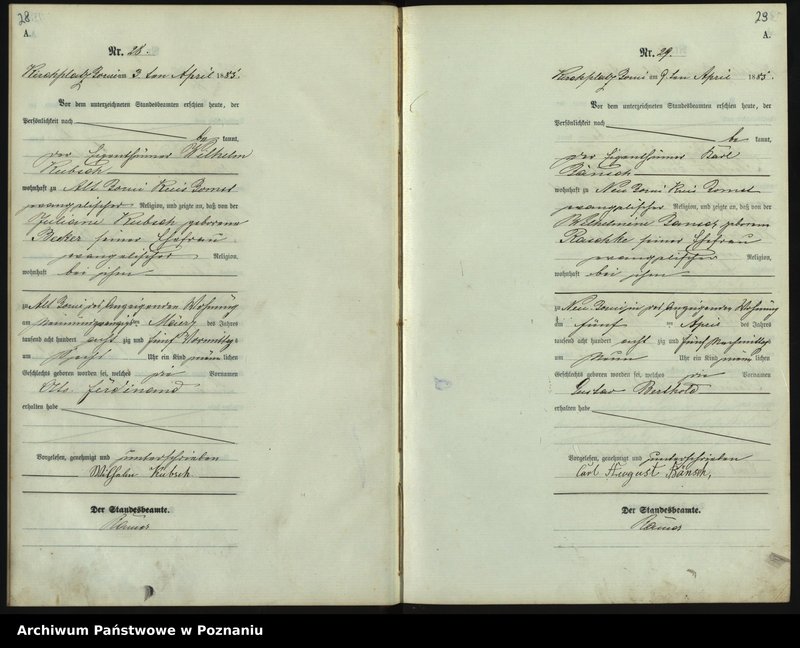 28
A.
Nr. 28.
Kirchplatz Borui am 3. ten April 1885.
Vor dem unterzeichneten Standesbeamten erschien heute, der
Persönlichkeit nach
be kannt,
der Eigenthümer Wilhelm
Kubsch
wohnhaft zu Alt Borui Kreis Bomst
evangelischer Religion, und zeigte an, daß von der
Juliane Kubsch geborene
Becker seiner Ehefrau
evangelischer Religion,
wohnhaft bei ihm
zu Alt Borui des Anzeigenden Wohnung
am März des Jahres
tausend acht hundert acht zig und fünf Vormittags
um acht Uhr ein Kind männ lichen
Geschlechts geboren worden sei, welches die Vornamen
Otto Ferdinand
erhalten habe
Vorgelesen, genehmigt und unterschrieben
Wilhelm Kubsch
Der Standesbeamte.
29
A.
Nr. 29.
Kirchplatz Borui am 9. ten April 1885.
Vor dem unterzeichneten Standesbeamten erschien heute, der
Persönlichkeit nach
be kannt,
der Eigenthümer Karl
Bänsch
wohnhaft zu Neu Borui Kreis Bomst
evangelischer Religion, und zeigte an, daß von der
Wilhelmine Bänsch geborene
Raschke seiner Ehefrau
evangelischer Religion,
wohnhaft bei ihm
zu Neu Borui in des Anzeigenden Wohnung
am fünf ten April des Jahres
tausend acht hundert acht zig und fünf Nachmittags
um neun Uhr ein Kind männ lichen
Geschlechts geboren worden sei, welches die Vornamen
Gustav Berthold
erhalten habe
Vorgelesen, genehmigt und unterschrieben
Carl August Bänsch,
Der Standesbeamte.
Archiwum Państwowe w Poznaniu